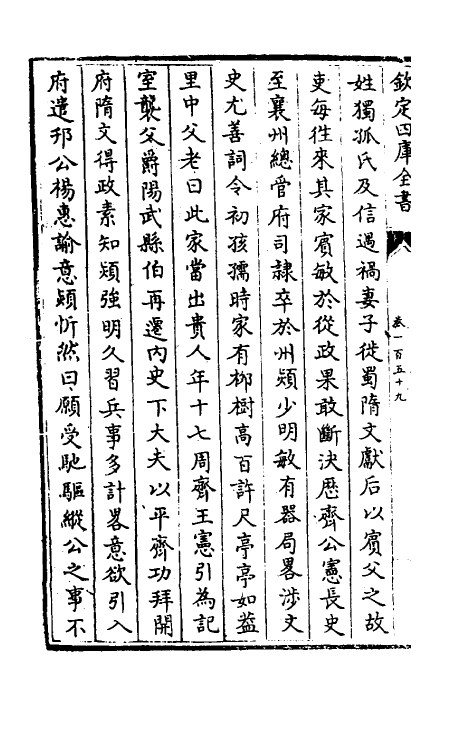 欽定四庫全書
卷一百五十九
姓獨孤氏及信遇禍妻子徙蜀隋文獻后以賓父之故
吏每徃來其家賓敏於從政果敢斷決歴齊公憲長史
至襄州總管府司隸卒於州熲少明敏有器局畧涉文
史尤善詞令初孩孺時家有栁樹高百許尺亭亭如葢
里中父老曰此家當出貴人年十七周齊王憲引為記
室襲父爵陽武縣伯再遷内史下大夫以平齊功拜開
府隋文得政素知熲強明久習兵事多計畧意欲引入
府遣邗公楊惠諭意熲忻然曰願受馳驅縱公之事不